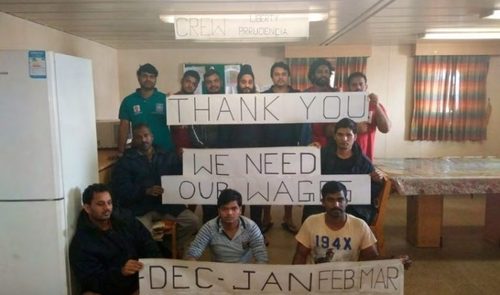 CREW LIBERTY PRRUDENCIA
THANK YOU
WE NEED
OUR WAGES
1942
DEC - JAN FEB MAR